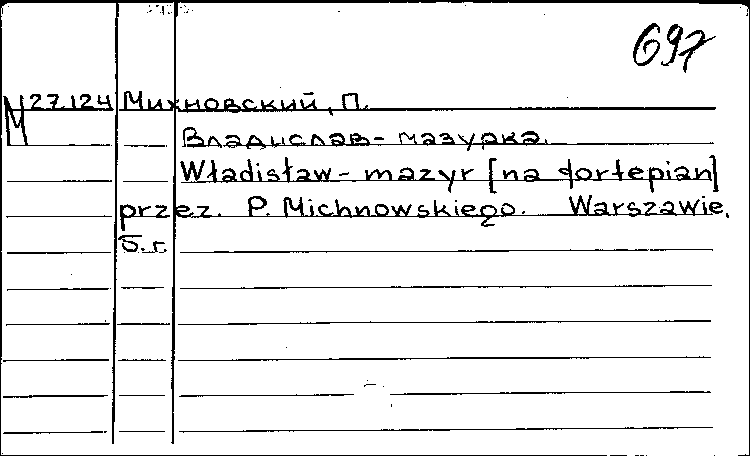 697
М 27.124 Михновский, П.
Владислав - мазурка.
Władisław - mazyr [na fortepian]
przez. P. Michnowskiego. Warszawie,
б.г.